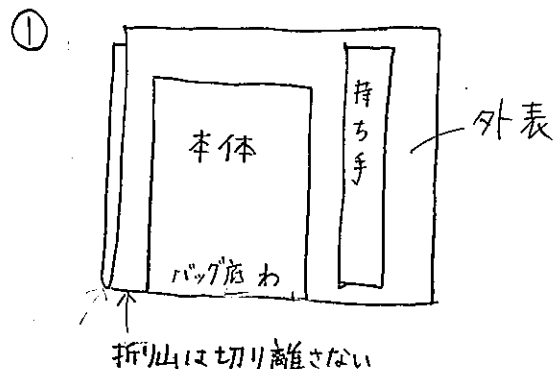 ①
本体
持ち手
外表
バッグ底 わ
折り山は切り離さない